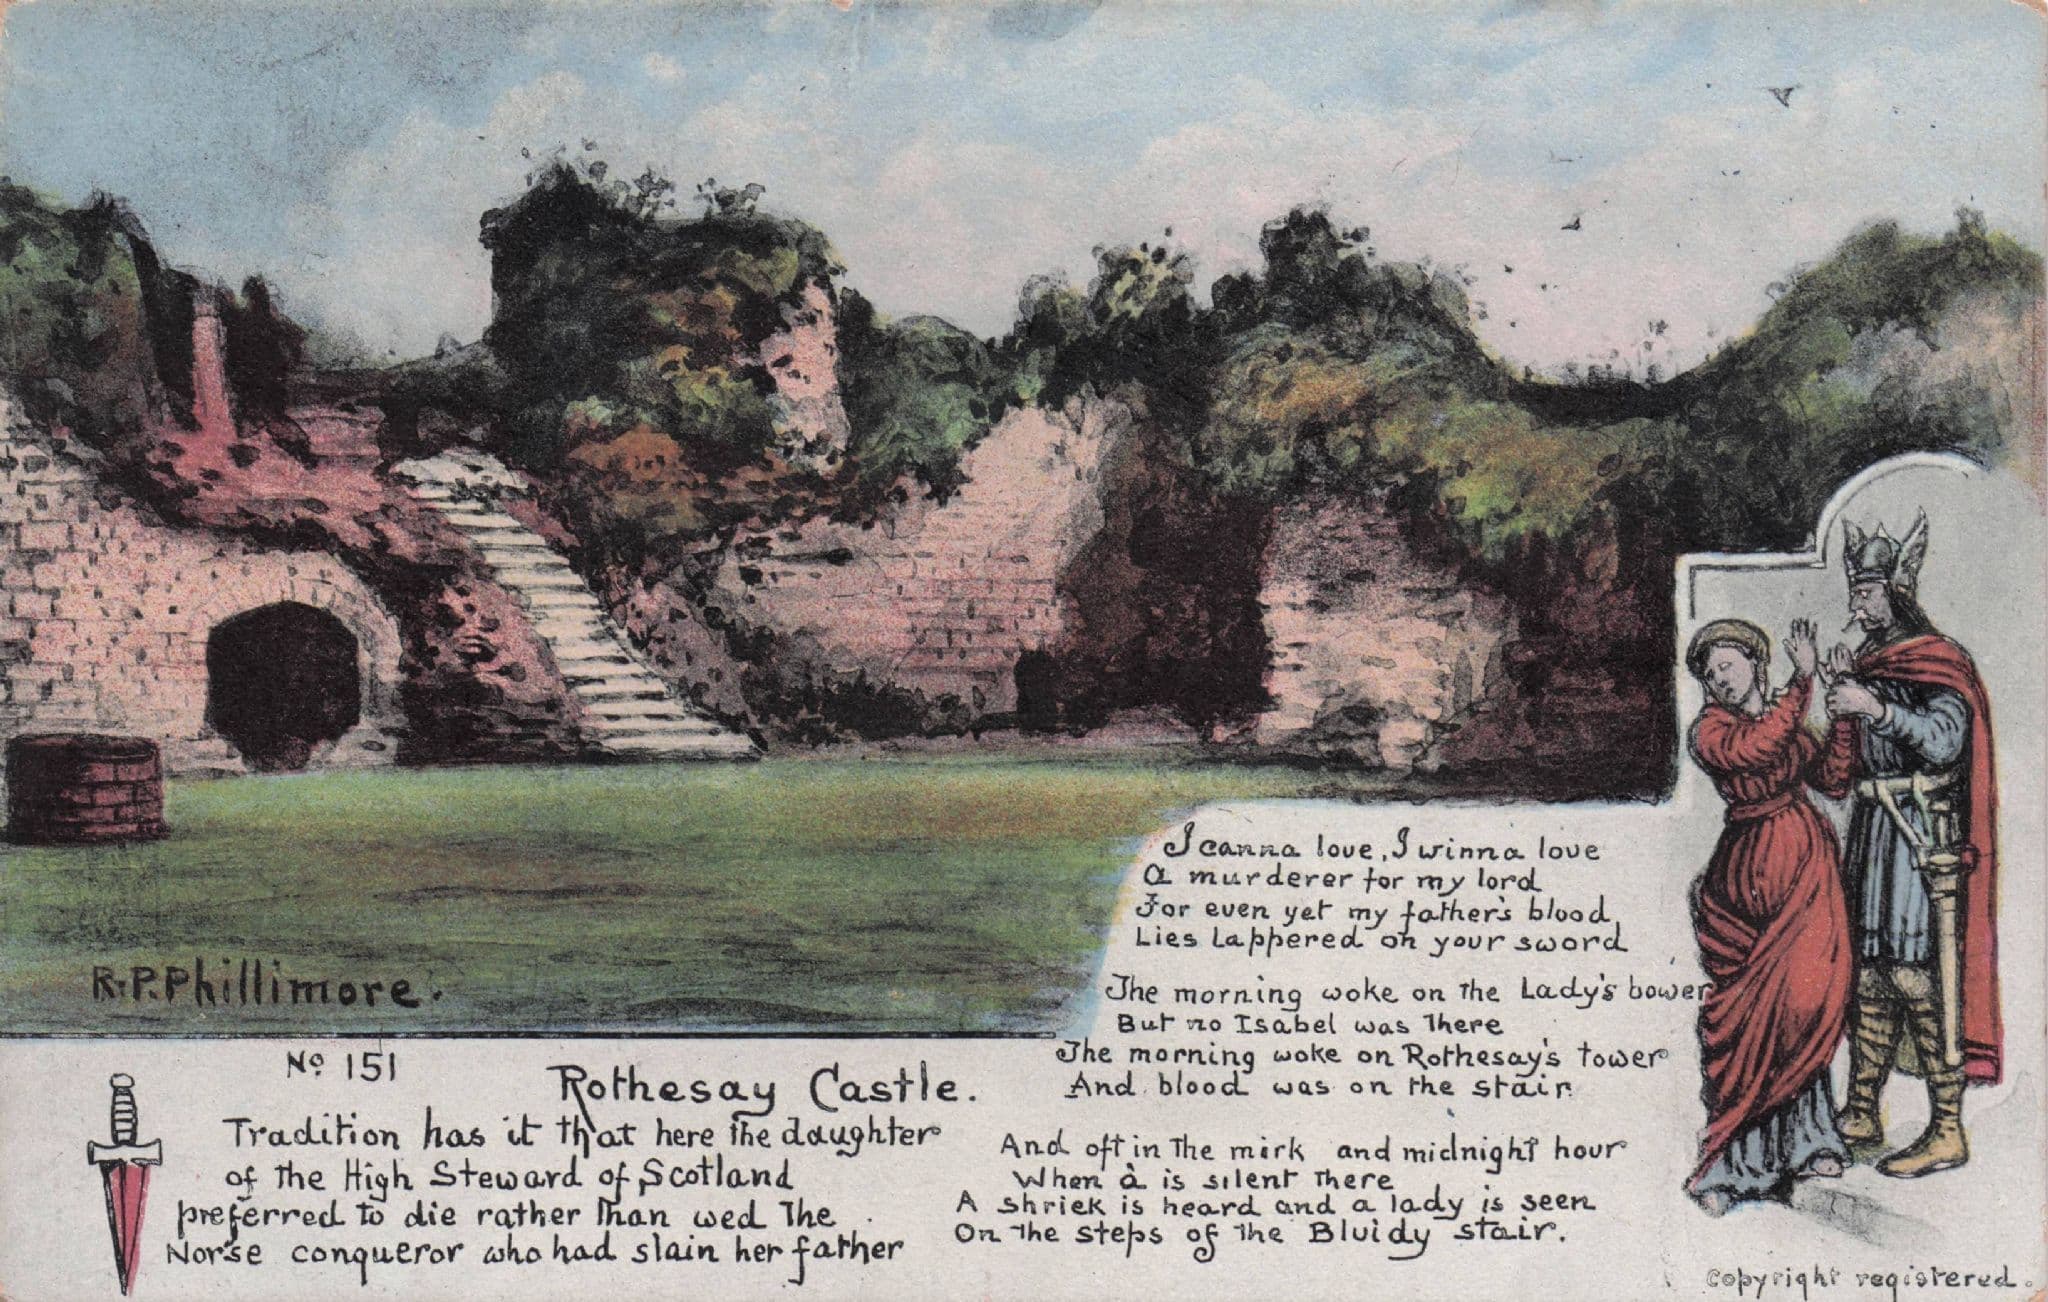 R.P. Phillimore.
No. 151
Rothesay Castle.
Tradition has it that here the daughter
of the High Steward of Scotland
preferred to die rather than wed the
Norse conqueror who had slain her father
I canna love, I winna love
A murderer for my lord
For even yet my father's blood
Lies Lappered on your sword
The morning woke on the Lady's bower
But no Isabel was there
The morning woke on Rothesay's tower
And blood was on the stair
And oft in the mirk and midnight hour
When à is silent there
A shriek is heard and a lady is seen
On the steps of the Bluidy stair.
Copyright registered.